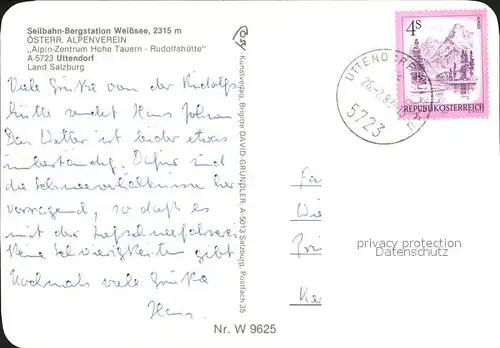 Seilbahn-Bergstation Weißsee, 2315 m
ÖSTERR. ALPENVEREIN
„Alpin-Zentrum Hohe Tauern - Rudolfshütte"
A-5723 Uttendorf
Land Salzburg
Viele Grüße von der Rudolfs
hütte sendet Hans
Das Wetter ist leider etwas
unbeständig. Dafür sind
die Schneeverhältnisse her
vorragend, so daß es
mit der Tiefschneefahrerei
keine Schwierigkeiten gibt
Nochmals viele Grüße
Hans
Kunstverlag, Brigitte DAVID-GRÜNDLER, A-5013 Salzburg, Postfach 35
4S
REPUBLIK ÖSTERREICH
UTTENDORF
5723
Fa
Wie
Pri
privacy protection
Datenschutz
Nr. W 9625